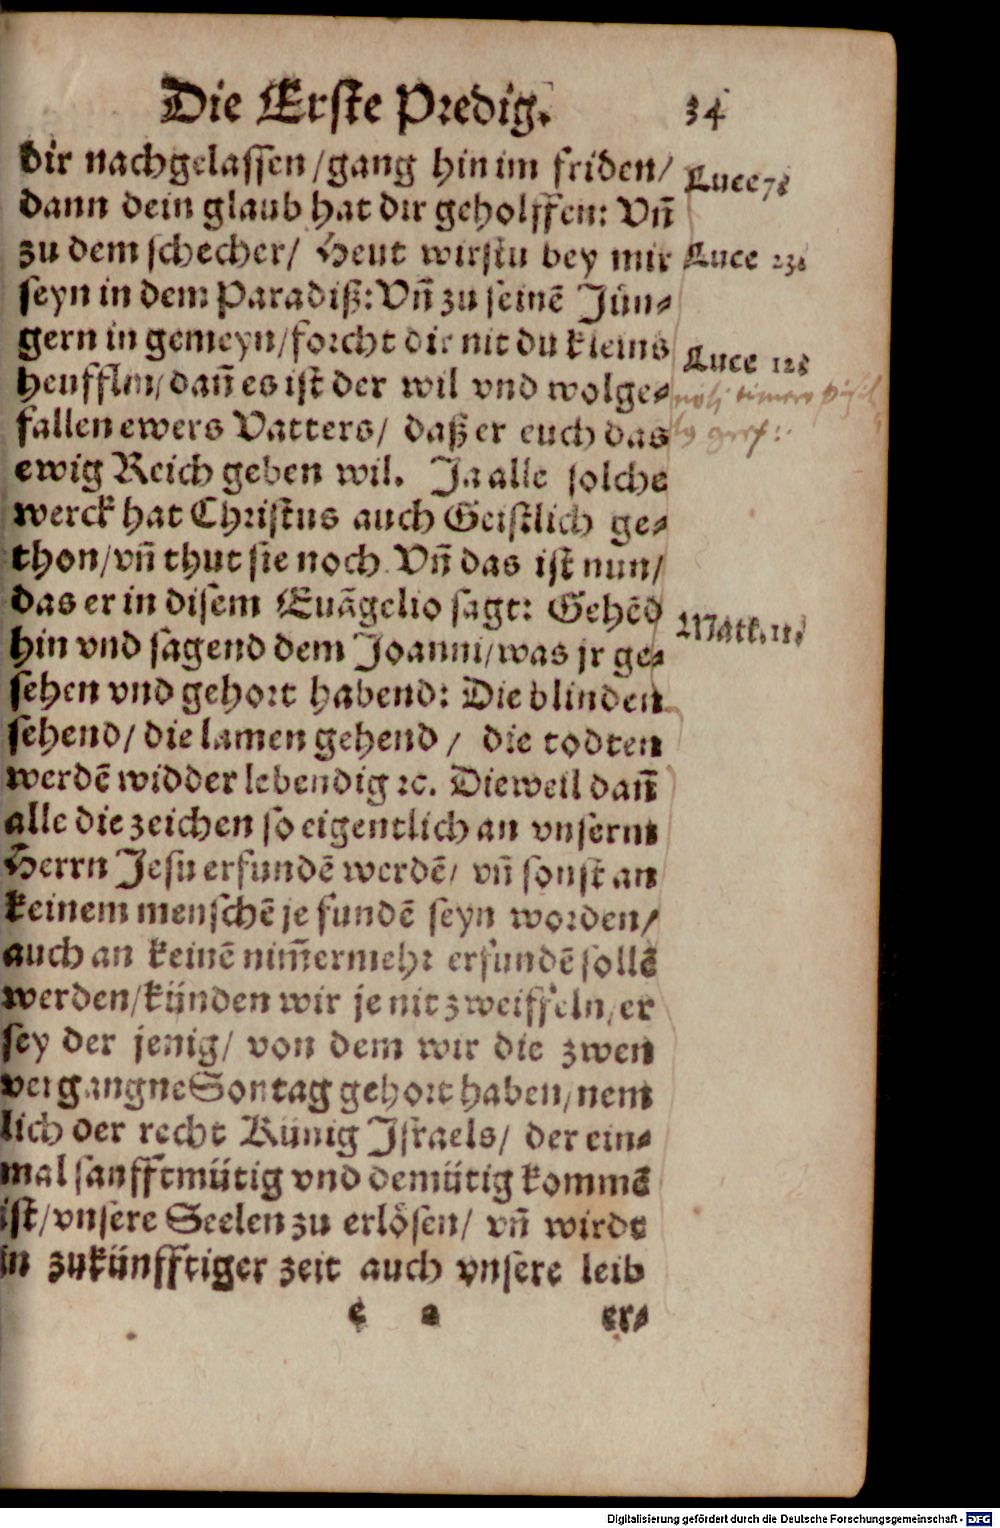 Die Erste Predig. 34
dir nachgelassen/gang hin im friden/ Luce 7.
dann dein glaub hat dir geholffen: Vñ
zu dem schecher/ Heut wirstu bey mir Luce 23.
seyn in dem Paradiß: Vñ zu seinē Jün-
gern in gemeyn/forcht dir nit du kleins Luce 12.
heufflin/dañ es ist der wil vnd wolge- noli timere
fallen ewers Vatters/ daß er euch das
ewig Reich geben wil. Ja alle solche
werck hat Christus auch Geistlich ge-
thon/vñ thut sie noch. Vñ das ist nun/
das er in disem Euāgelio sagt: Gehēd
hin vnd sagend dem Joanni/was jr ge- Matt. 11.
sehen vnd gehort habend: Die blinden
sehend/ die lamen gehend/ die todten
werdē widder lebendig ꝛc. Dieweil dañ
alle die zeichen so eigentlich an vnserm
Herrn Jesu erfundē werdē/ vñ sonst an
keinem menschē je fundē seyn worden/
auch an keinē nim̄ermehr erfundē sollē
werden/künden wir je nit zweiffeln/er
sey der jenig/ von dem wir die zwen
vergangne Sontag gehort haben/nem
lich der recht Künig Israels/ der ein-
mal sanfftmütig vnd demütig kommē
ist/vnsere Seelen zu erlösen/ vñ wirdt
in zukünfftiger zeit auch vnsere leib
e a er-
Digitalisierung gefördert durch die Deutsche Forschungsgemeinschaft - DFG